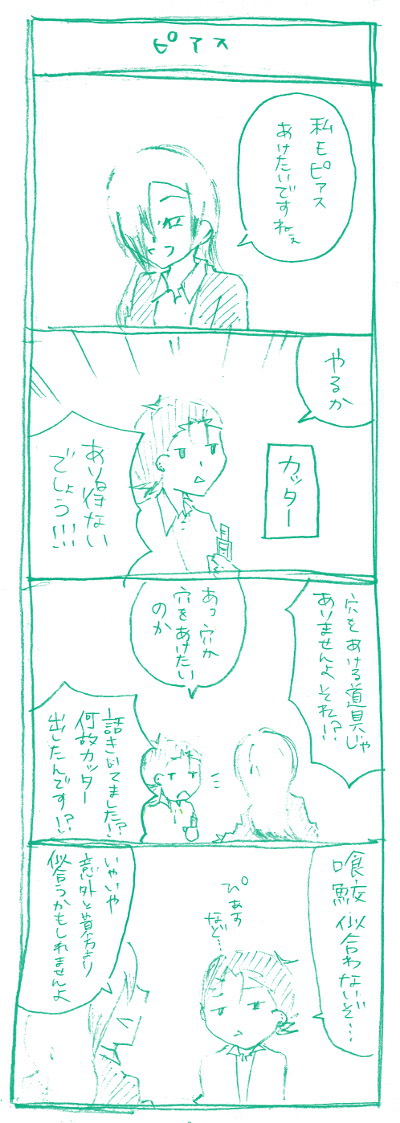 ピアス
私もピアス
あけたいですねぇ
やるか
カッター
あり得ない
でしょう!!!
穴をあける道具じゃ
ありませんよそれ!?
あっ穴か
穴をあけたい
のか
話きいてました!?
何故カッター
出したんです!?
喰鮫似合わないぞ…
ぴあす
など…
いやいや
意外と貴方より
似合うかもしれませんよ